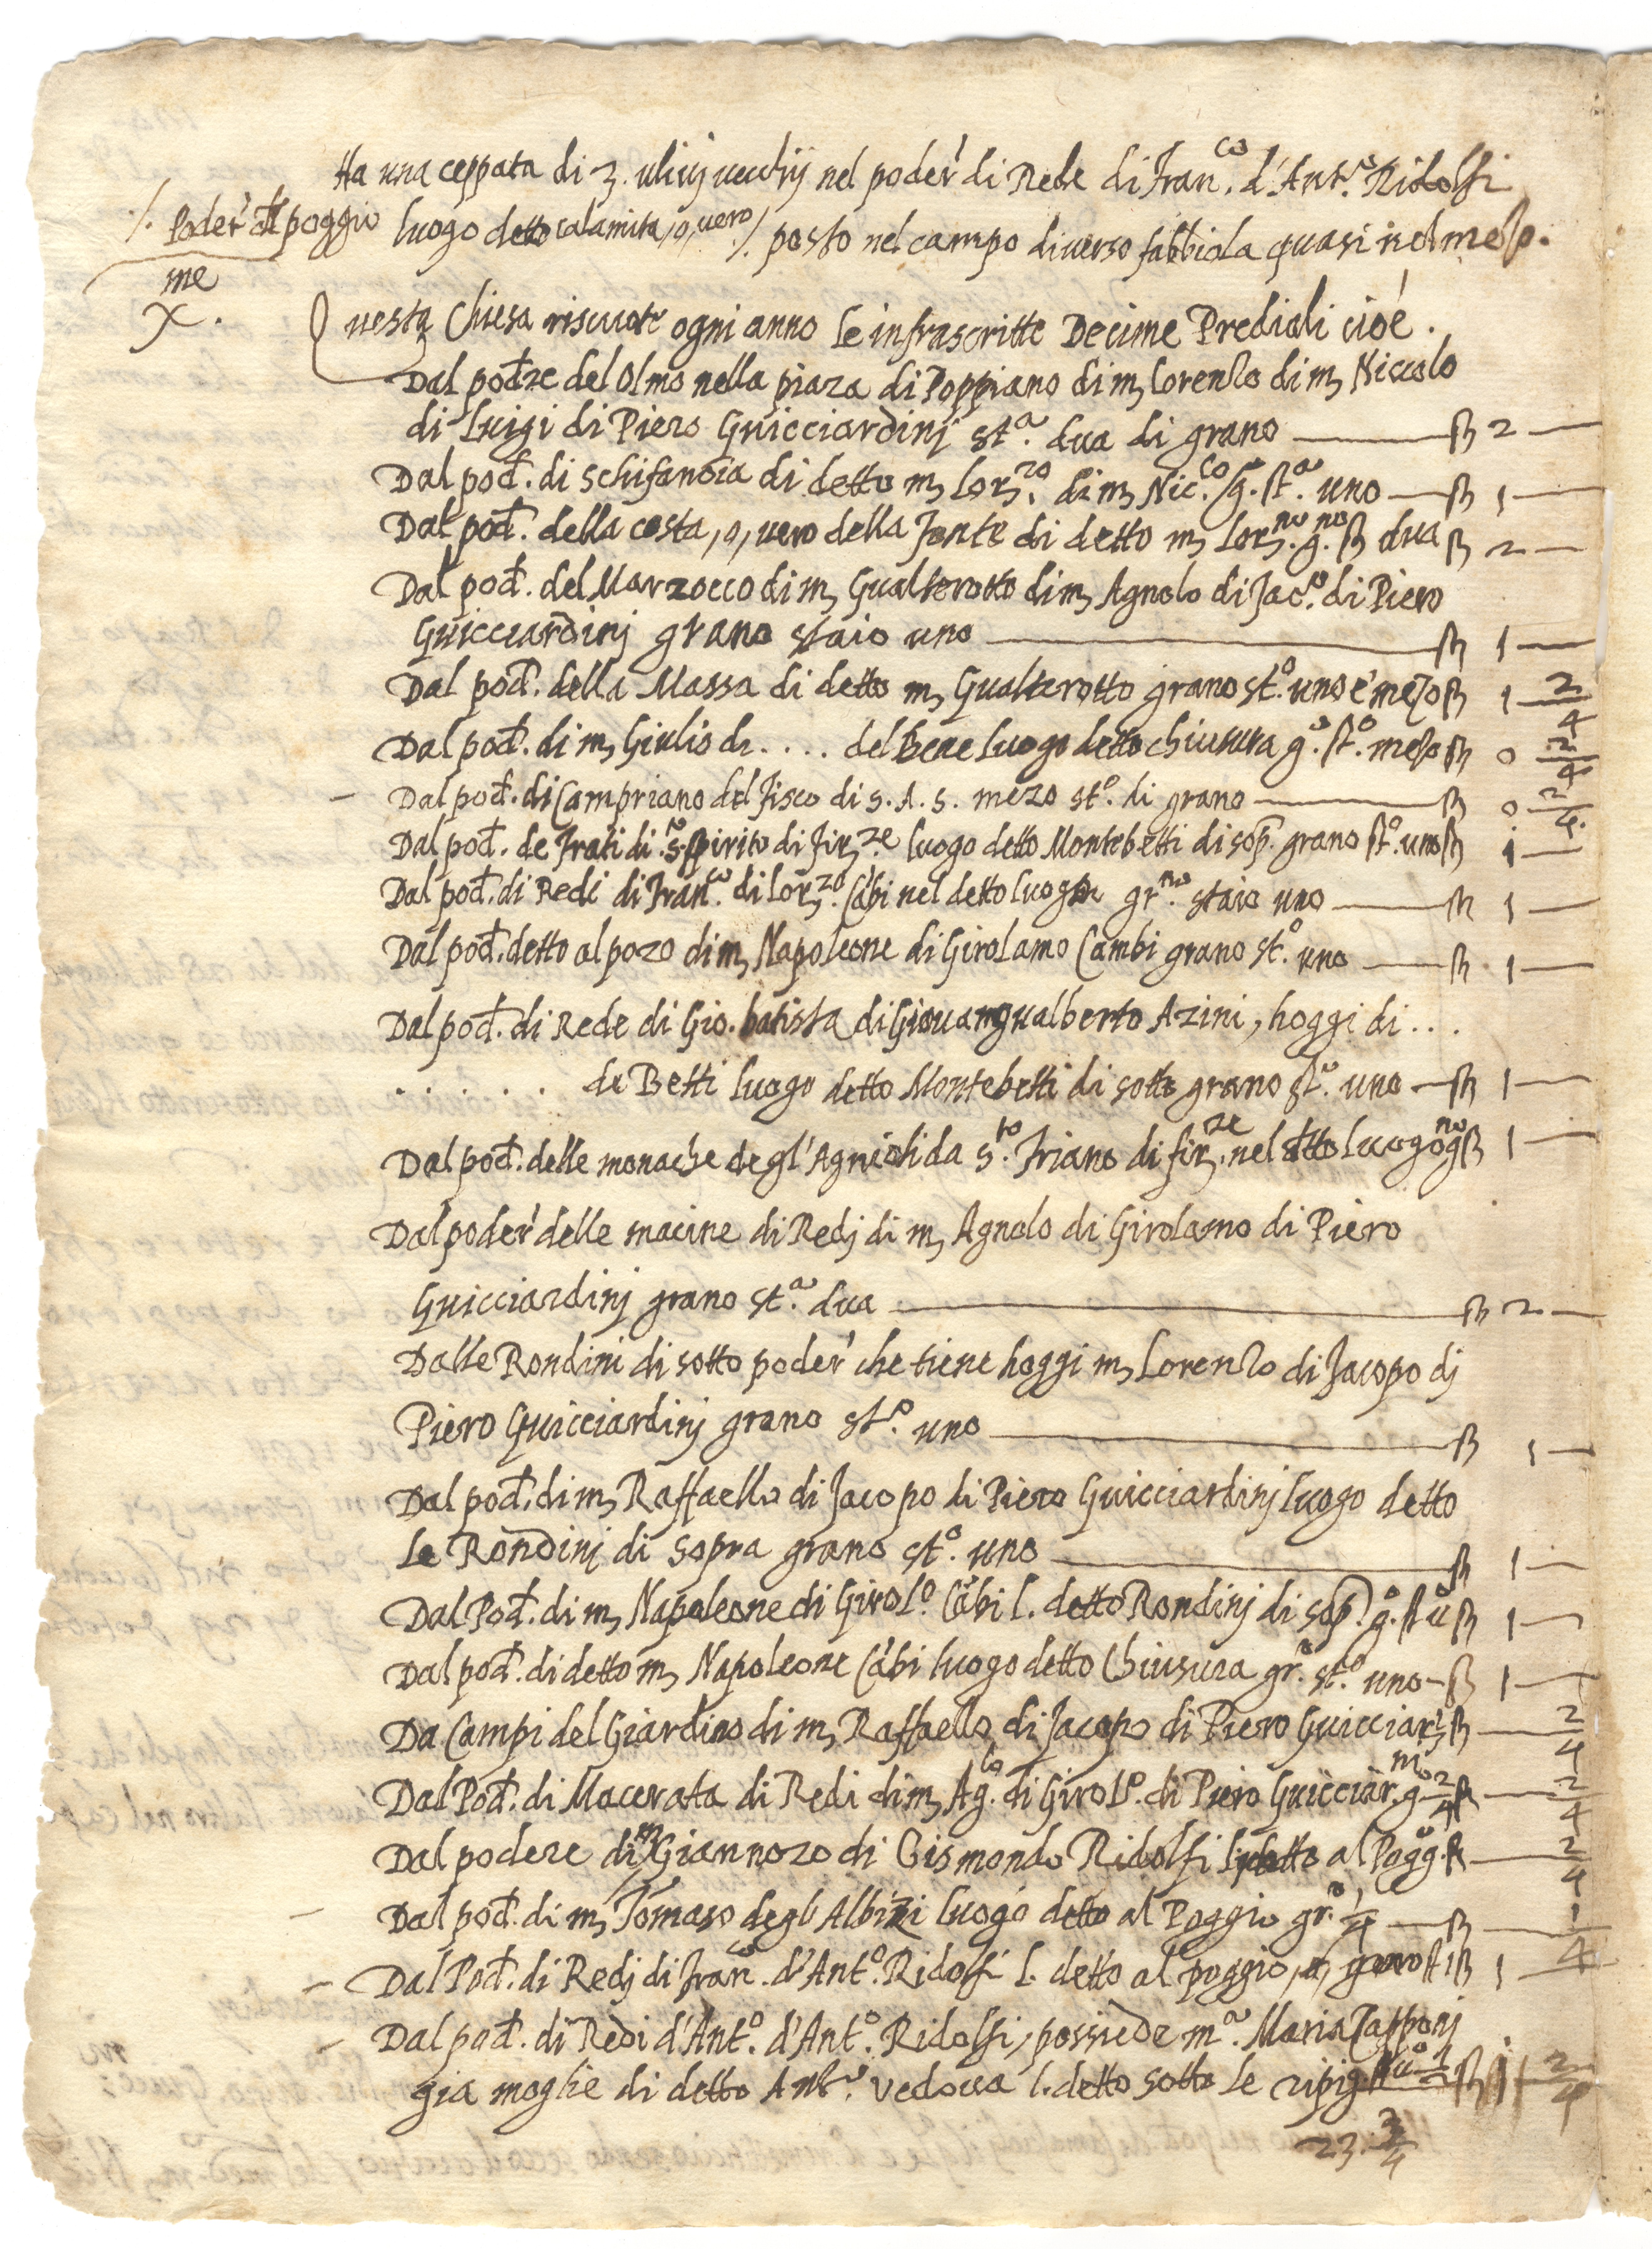 Ha una ceppata di 3. ulivi vecchij nel poder' di Rede di Fran.co d'Ant.o Ridolfi
./. Poder' del poggio
luogo detto calamita, o, vero ./. posto nel campo di verso fabbiola quasi nel mezo.
me
X.
Questa Chiesa riscuote ogni anno le infrascritte Decime Prediali cioè.
Dal podre del olmo nella piaza di Poppiano di m Lorenzo di m Niccolo
di Luigi di Piero Guicciardinj st.a dua di grano — st 2 —
Dal pod. di schifanoia di detto m Lor.zo di m Nic.co g. st.a uno — st 1 —
Dal pod. della costa, o, vero della Fonte di detto m Lor.no g.no st dua st 2 —
Dal pod. del Marzocco di m Gualterotto di m Agnolo di Jac.o di Piero
Guicciardinj grano staio uno — st 1 —
Dal pod. della Massa di detto m Gualterotto grano st.o uno e' mezo st 1 2/4
Dal pod. di m Giulio di .... del Bene luogo detto chiusura g.o st.o mezo st 0 2/4
— Dal pod. di Campriano del Fisco di S. A. S. mezo st.o di grano — st 0 2/4
Dal pod. de Frati di S.o Spirito di Fir.ze luogo detto Montebetti di sop. grano st.o uno st 1 —
Dal pod. di Redi di Fran.co di Lor.zo Cābi nel detto luogo gr.no staio uno — st 1 —
Dal pod. detto al pozo di m Napoleone di Girolamo Cambi grano st.o uno — st 1 —
Dal pod. di Rede di Gio. batista di Giovangualberto Azini, hoggi di ...
...... de Betti luogo detto Montebetti di sotto grano st.o uno — st 1 —
Dal pod. delle monache degl'Agnioli da S.to Friano di fir.ze nel dtto luogo g.no st 1 —
Dal poder' delle macine di Redj di m Agnolo di Girolamo di Piero
Guicciardinj grano st.a dua — st 2 —
Dalle Rondini di sotto poder' che tiene hoggi m Lorenzo di Jacopo dj
Piero Guicciardinj grano st.o uno — st 1 —
Dal pod. di m Raffaello di Jacopo di Piero Guicciardinj luogo detto
Le Rondinj di sopra grano st.o uno — st 1 —
Dal Pod. di m Napoleone di Girol.o Cābi l. detto Rondinj di sop. g.o st u.o st 1 —
Dal pod. di detto m Napoleone Cābi luogo detto Chiusura gr.o st.o uno — st 1 —
Da Campi del Giardino di m Raffaello di Jacopo di Piero Guicciar.j st — 2/4
Dal Pod. di Macerata di Redi di m Ag.lo di Girol.o di Piero Guicciar. g.no 2/4 st — 2/4
Dal podere di m Giannozo di Gismondo Ridolfi l. detto al Pogg.o st — 2/4
— Dal pod. di m Tomaso degl'Albizi luogo detto al Poggio gr.o 1/4 — st — 1/4
— Dal Pod. di Redj di Fran.co d'Ant.o Ridolfi l. detto al poggio, grano st 1 st 1 —
— Dal pod. di Redi d'Ant.o d'Ant.o Ridolfi, possiede m.a Maria Capponj
gia moglie di detto Ant.o vedova l. detto sotto le ripi g. st u.o 1/2 st 1 2/4
23. 3/4